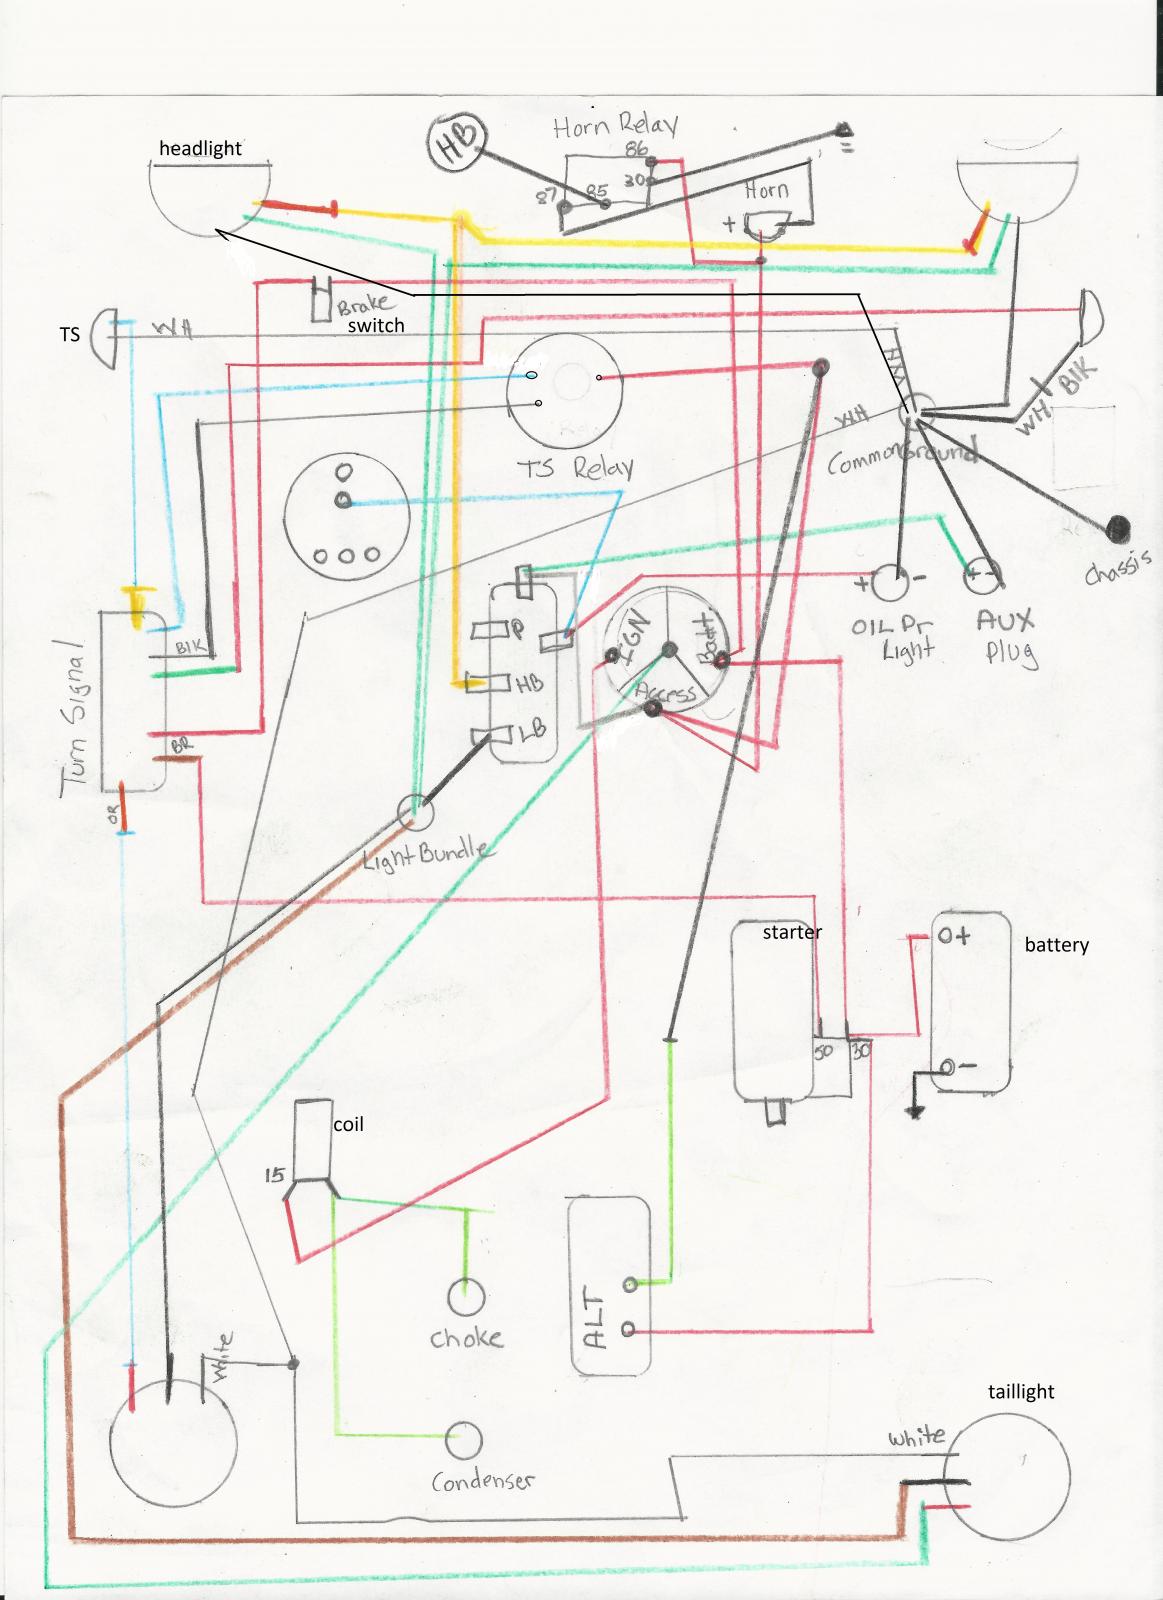 headlight
HB
Horn Relay
86
30
87
85
Horn
+
Brake
switch
TS
WH
WH
WH
WH
BIK
TS Relay
Common Ground
chassis
+ -
+ -
OIL Pr
Light
AUX
Plug
P
HB
LB
IGN
Batt.
Access
BIK
BR
Turn Signal
OR
Light Bundle
starter
50
30
+
-
battery
coil
15
choke
ALT
Condenser
White
taillight
white